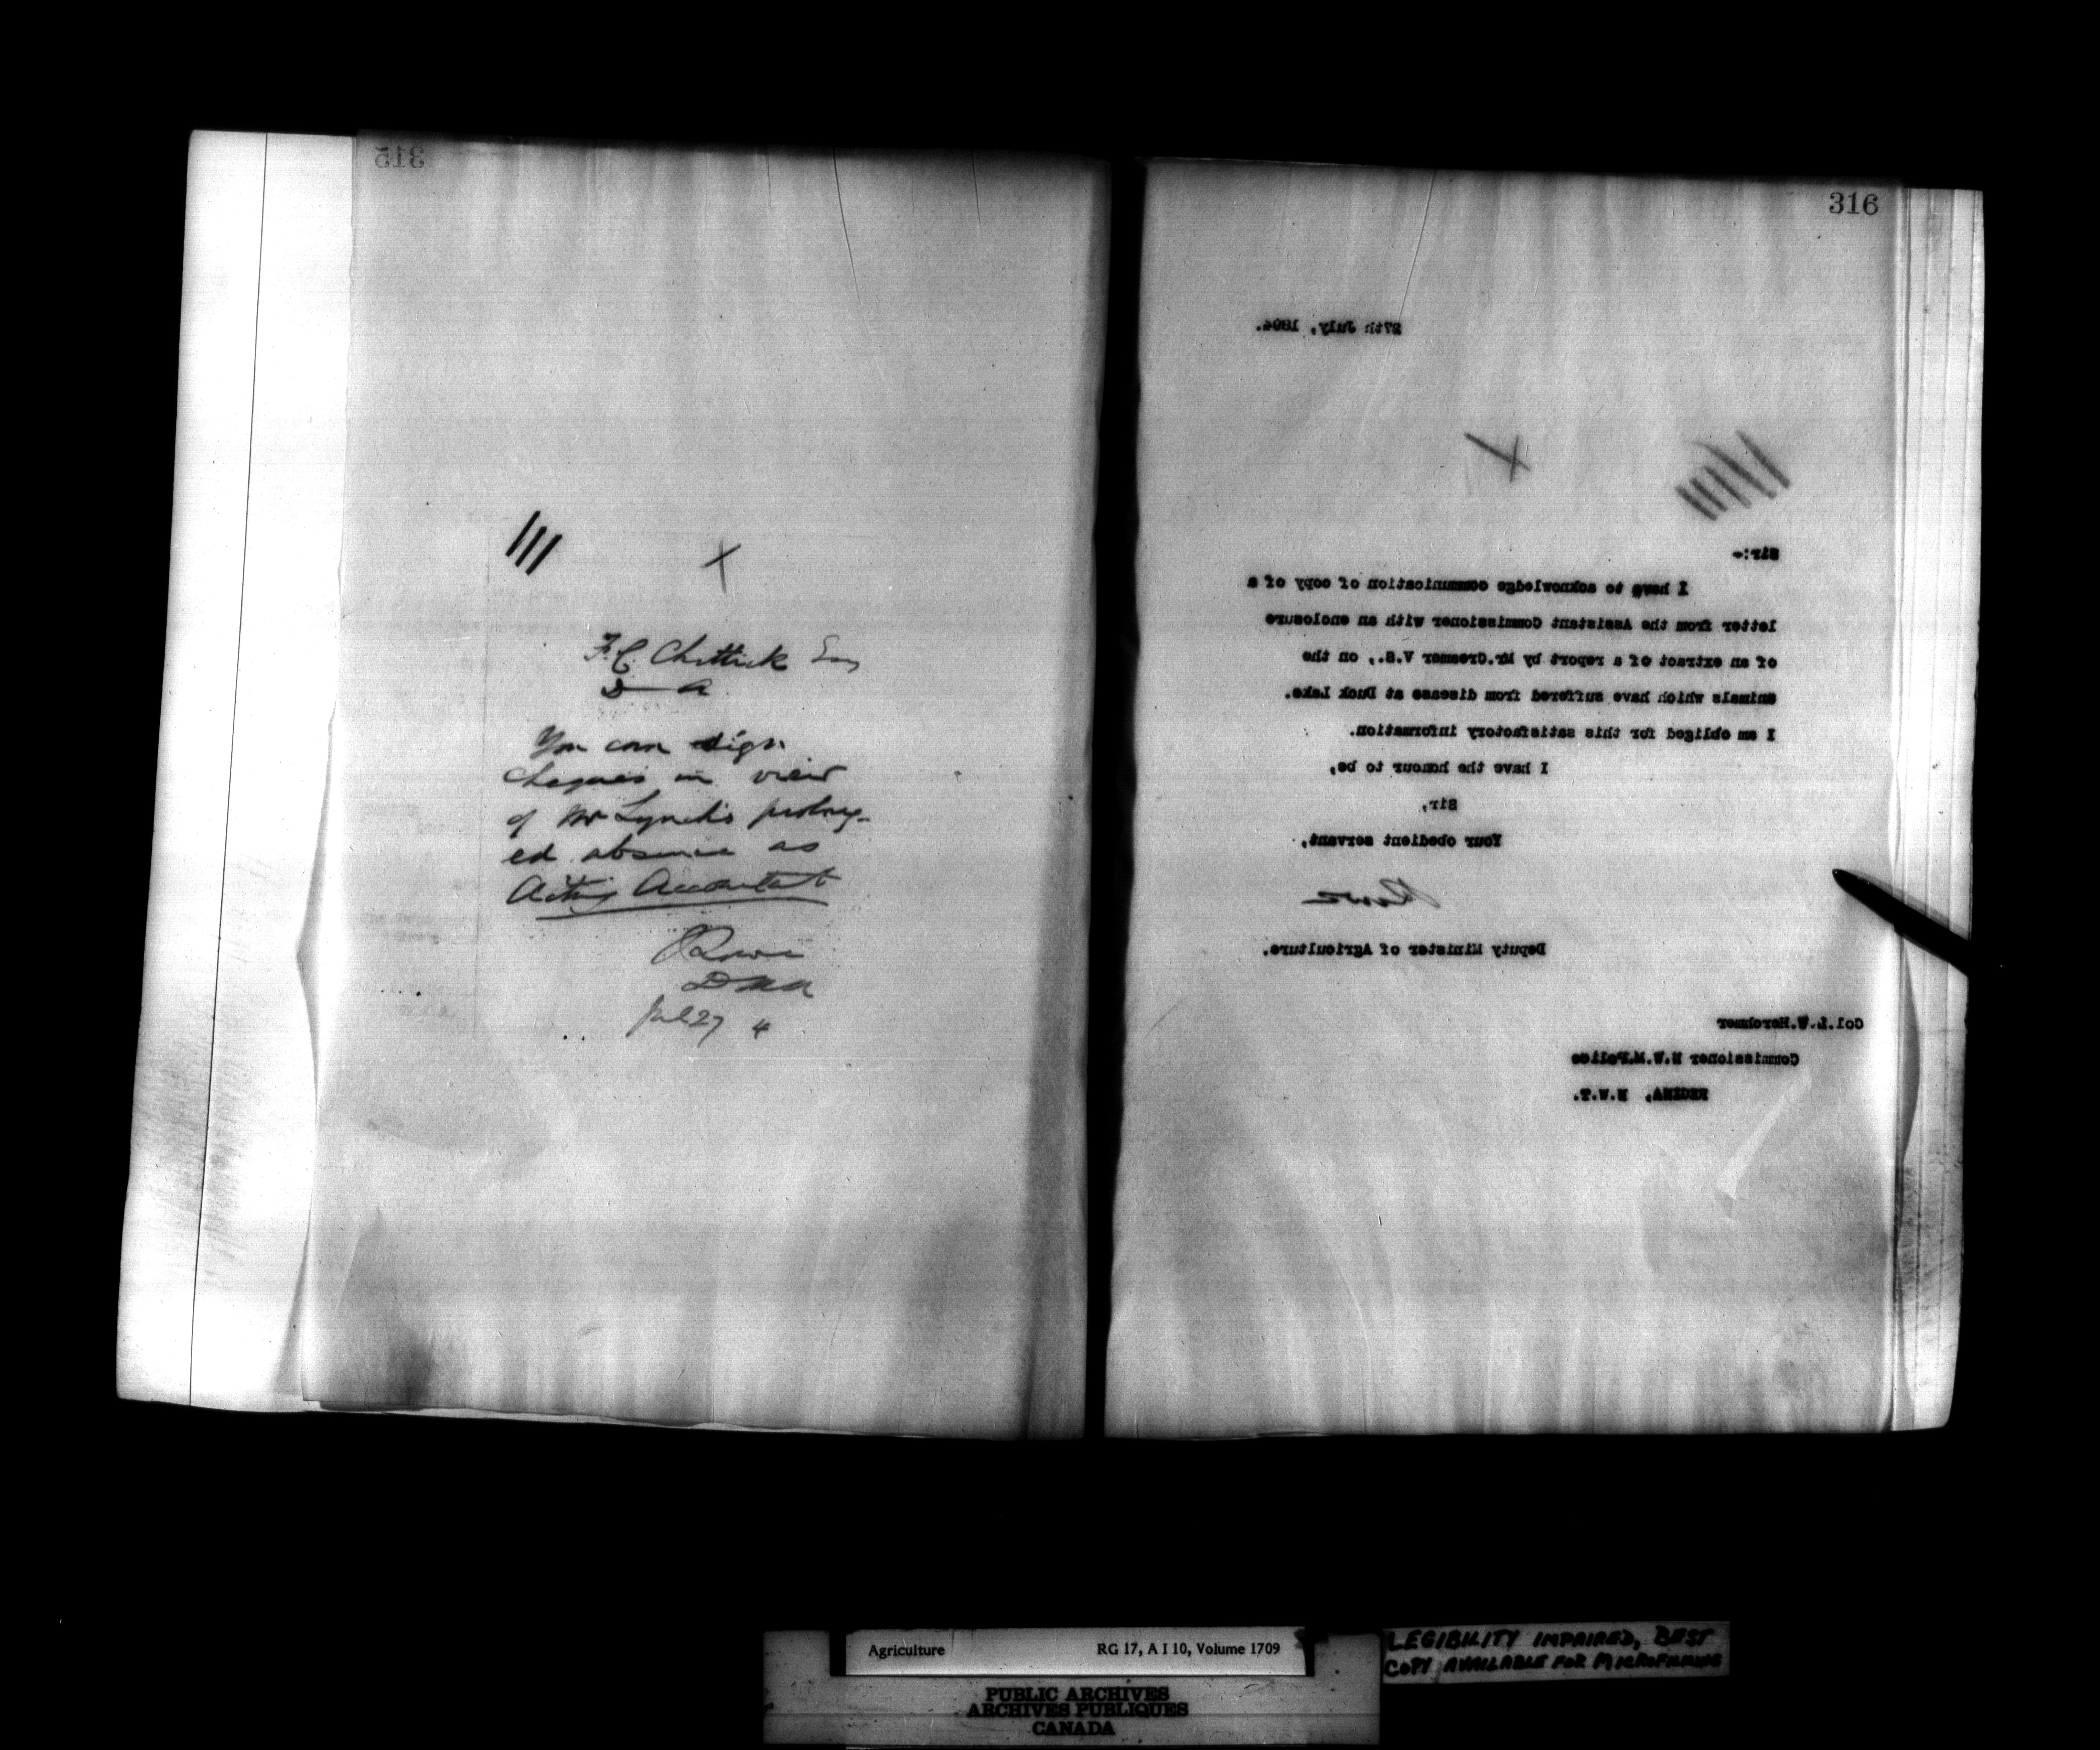 315
F. C. Chittick Esq
D A
You can sign
cheques in view
of Mr Lynch's prolong-
ed absence as
Acting Accountant
Lowe
D M A
Jul 27 4
316
27th July, 1894.
Sir:-
I have to acknowledge communication of copy of a
letter from the Assistant Commissioner with an enclosure
of an extract of a report by Mr.Creamer V.S., on the
animals which have suffered from disease at Duck Lake.
I am obliged for this satisfactory information.
I have the honour to be,
Sir,
Your obedient servant,
Lowe
Deputy Minister of Agriculture.
Col.L.W.Herchmer
Commissioner N.W.M.Police
REGINA, N.W.T.
Agriculture RG 17, A I 10, Volume 1709
PUBLIC ARCHIVES
ARCHIVES PUBLIQUES
CANADA
LEGIBILITY IMPAIRED, BEST
COPY AVAILABLE FOR MICROFILMING